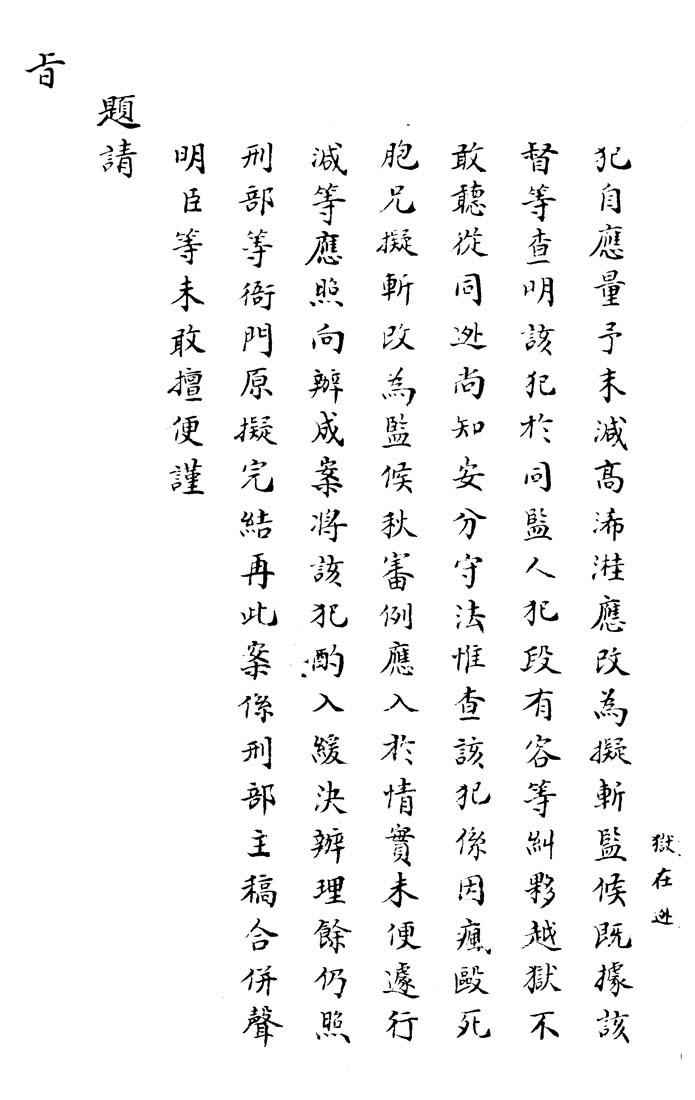 獄在逃
犯自應量予末減高浠溎應改為擬斬監候既據該
督等查明該犯於同監人犯段有容等糾夥越獄不
敢聽從同逃尚知安分守法惟查該犯係因瘋毆死
胞兄擬斬改為監候秋審例應入於情實未便遽行
減等應照向辦成案將該犯酌入緩決辦理餘仍照
刑部等衙門原擬完結再此案係刑部主稿合併聲
明臣等未敢擅便謹
題請
旨